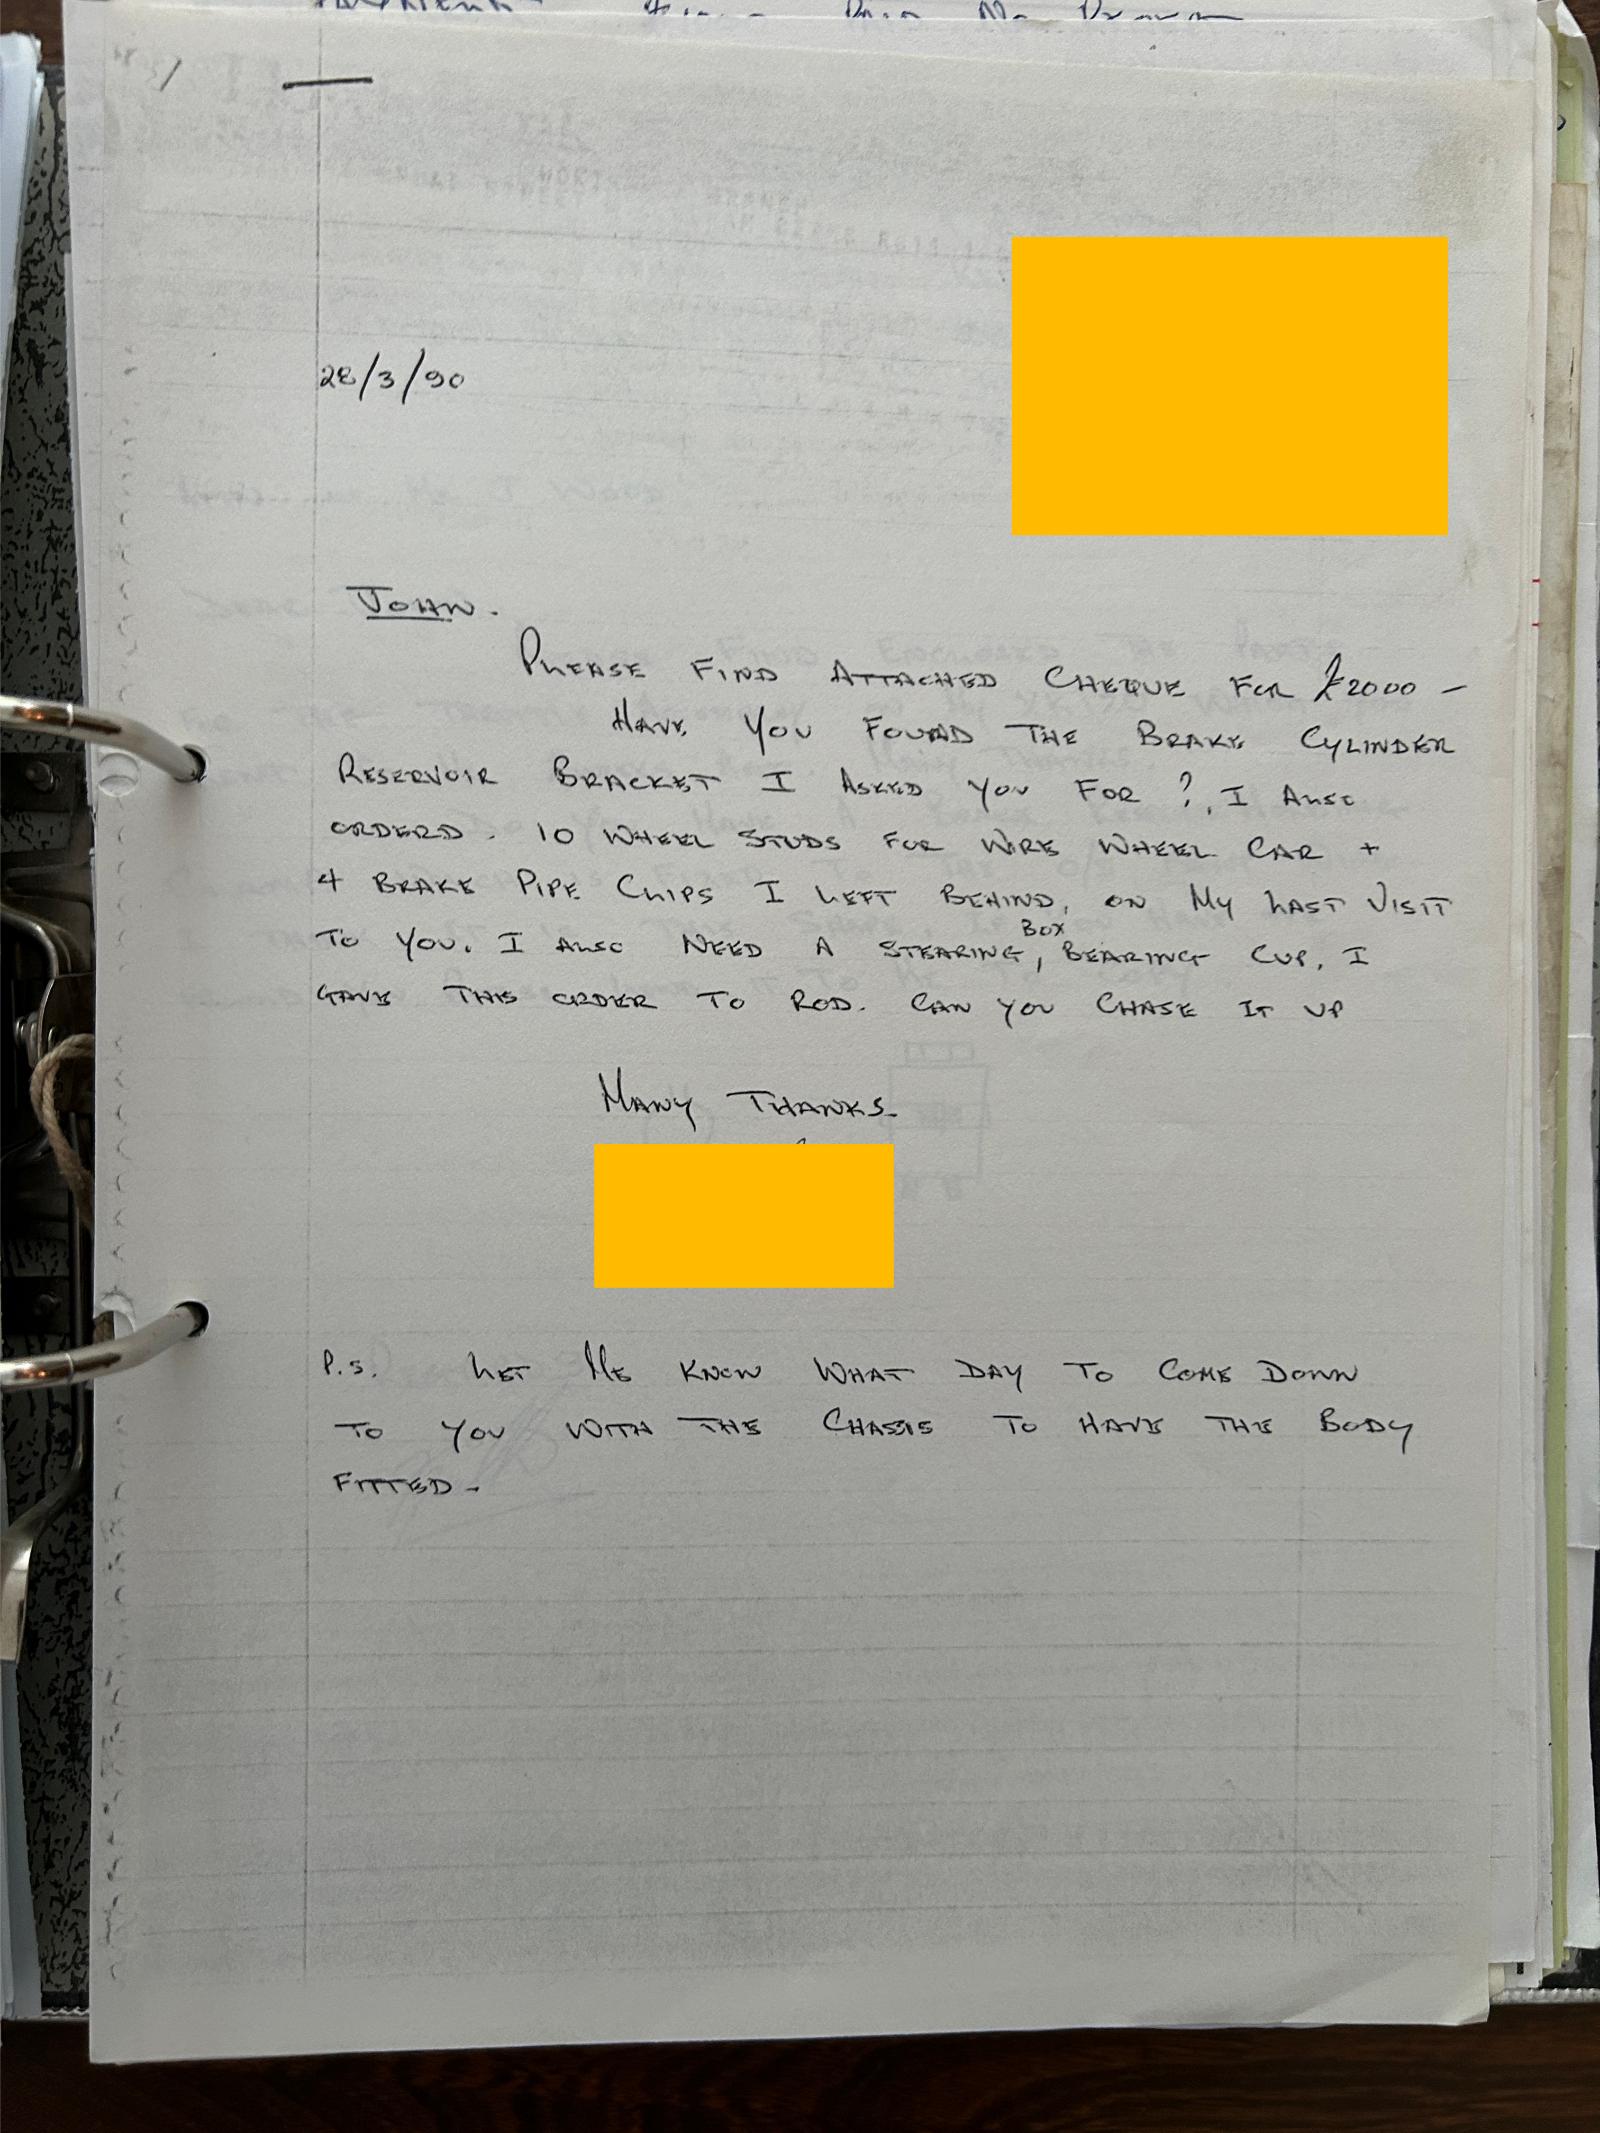 28/3/90
JOHN.
PLEASE FIND ATTACHED CHEQUE FOR £2000 -
HAVE YOU FOUND THE BRAKE CYLINDER
RESERVOIR BRACKET I ASKED YOU FOR ?, I ALSO
ORDERD. 10 WHEEL STUDS FOR WIRE WHEEL CAR +
4 BRAKE PIPE CLIPS I LEFT BEHIND, ON MY LAST VISIT
TO YOU. I ALSO NEED A STEARING, BOX BEARING CUP, I
GAVE THIS ORDER TO ROD. CAN YOU CHASE IT UP
MANY THANKS.
P.S. LET ME KNOW WHAT DAY TO COME DOWN
TO YOU WITH THE CHASSIS TO HAVE THE BODY
FITTED -